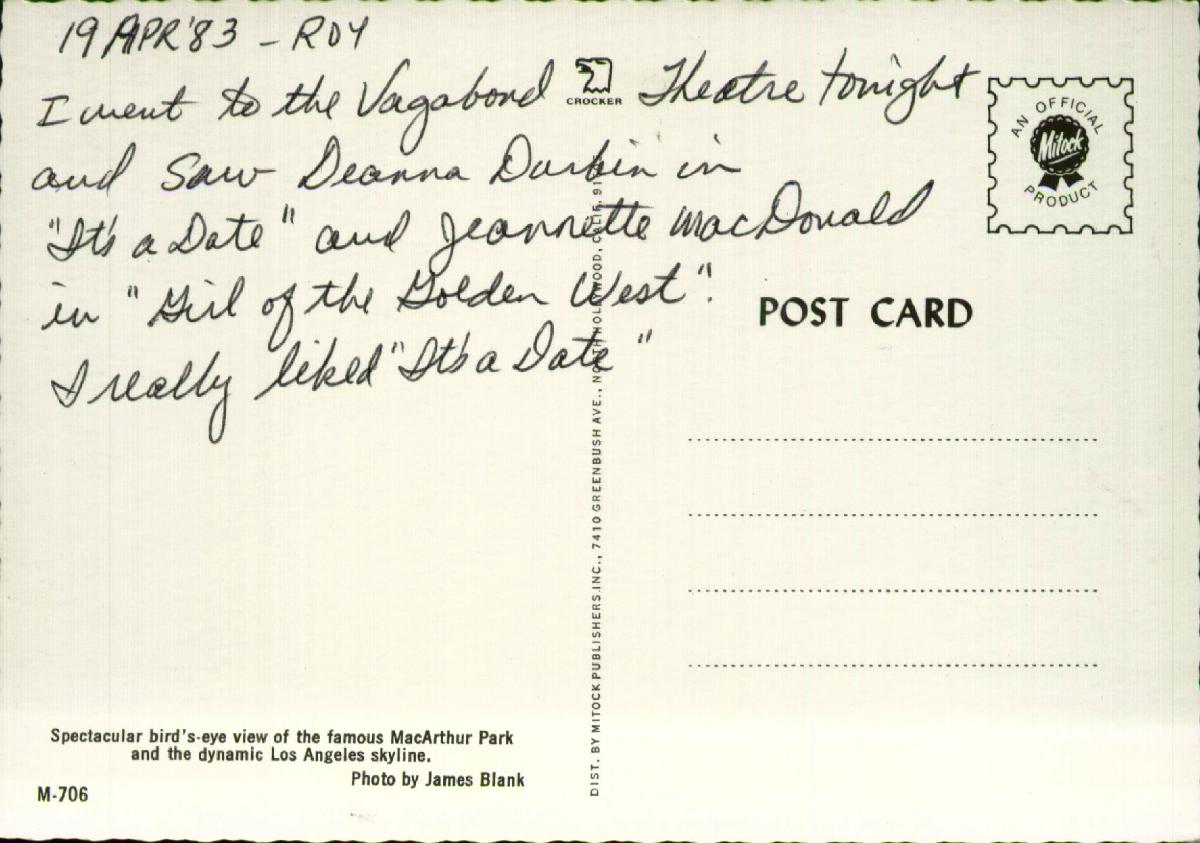 19 APR '83 - ROY
I went to the Vagabond Theatre tonight
CROCKER
and saw Deanna Durbin in
"It's a Date" and Jeannette MacDonald
in "Girl of the Golden West".
I really liked "It's a Date"
AN OFFICIAL
Mitock
PRODUCT
POST CARD
DIST. BY MITOCK PUBLISHERS, INC., 7410 GREENBUSH AVE., NORTH HOLLYWOOD, CALIF. 91
Spectacular bird's-eye view of the famous MacArthur Park
and the dynamic Los Angeles skyline.
Photo by James Blank
M-706